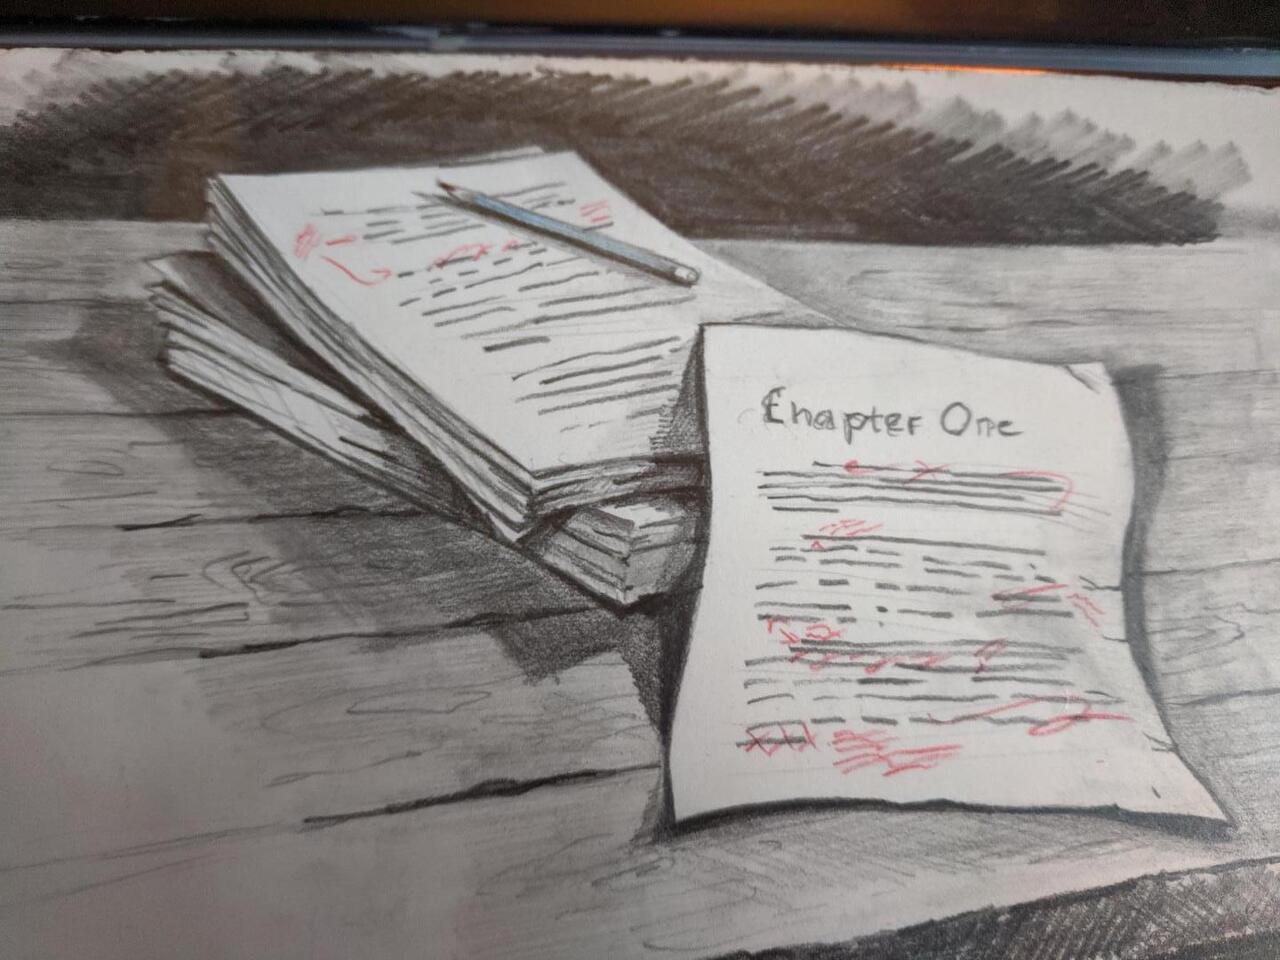 Chapter One